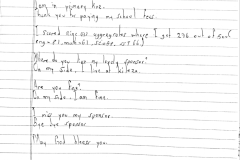 I am in primary five.
thank you for paying my school fees.
I scored nine six aggregates where I got 236 out of 400
eng = 61, math = 61,
Where do you live my lovely sponsor?
On my side, I live at
Are you fine?
On my side I am fine.
I miss you my sponsor.
Bye bye sponsor
May God bless you.